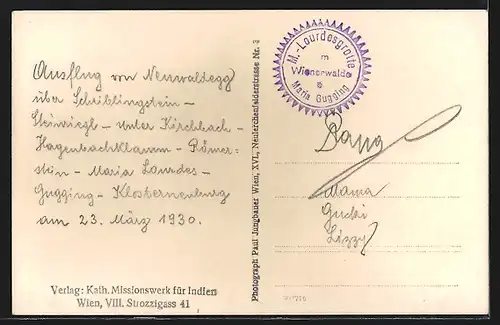 Ausflug von Neuwaldegg
über Scheiblingstein -
Steinriegl - Unter Kirchbach -
Hagenbachklamm - Römer-
stein - Maria Lourdes -
Gugging - Klosterneuburg
am 23. März 1930.
Verlag: Kath. Missionswerk für Indien
Wien, VIII. Strozzigass 41
Photograph Paul Jungbauer Wien, XVI., Neulerchenfelderstrasse Nr. 3
M.-Lourdesgrotte
m
Wienerwalde
Maria Gugging
Mama
Lizzy